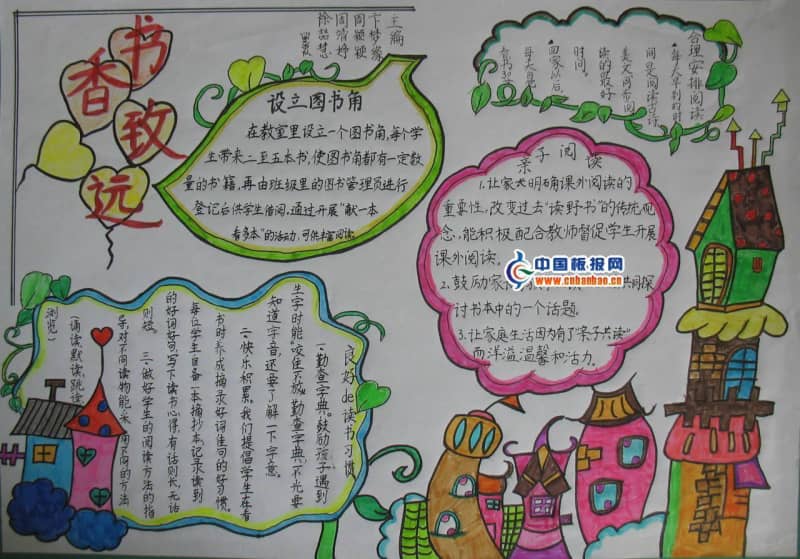 书
香
致
远
主编
卞梦缘
周颖颖
周清婷
徐喆慧
设立图书角
在教室里设立一个图书角,每个学
生带来二至五本书,使图书角都有一定数
量的书籍,再由班级里的图书管理员进行
登记后供学生借阅,通过开展“献一本
看多本”的活动,可供丰富阅读。
合理安排阅读
时间。
回家以后,
亲子阅读
1.让家长明确课外阅读的
重要性,改变过去“读野书”的传统观
念,能积极配合教师督促学生开展
课外阅读。
2.鼓励家
共同探
讨书本中的一个话题。
3.让家庭生活因为有了“亲子共读”
而洋溢温馨和活力。
中国板报网
www.cnbanbao.cn
良好de读书习惯
一.勤查字典。鼓励孩子遇到
生字时能“咬住不放”勤查字典,不光要
知道字音,还要了解一下字意。
二.快乐积累。我们提倡学生在看
书时养成摘录好词佳句的好习惯。
每位学生自备一本摘抄本记录读到
的好词好句,写下读书心得,有话则长,无话
则短。三.做好学生的阅读方法的指
导,对不同读物能采用不同的方法
(诵读,默读,跳读
浏览)